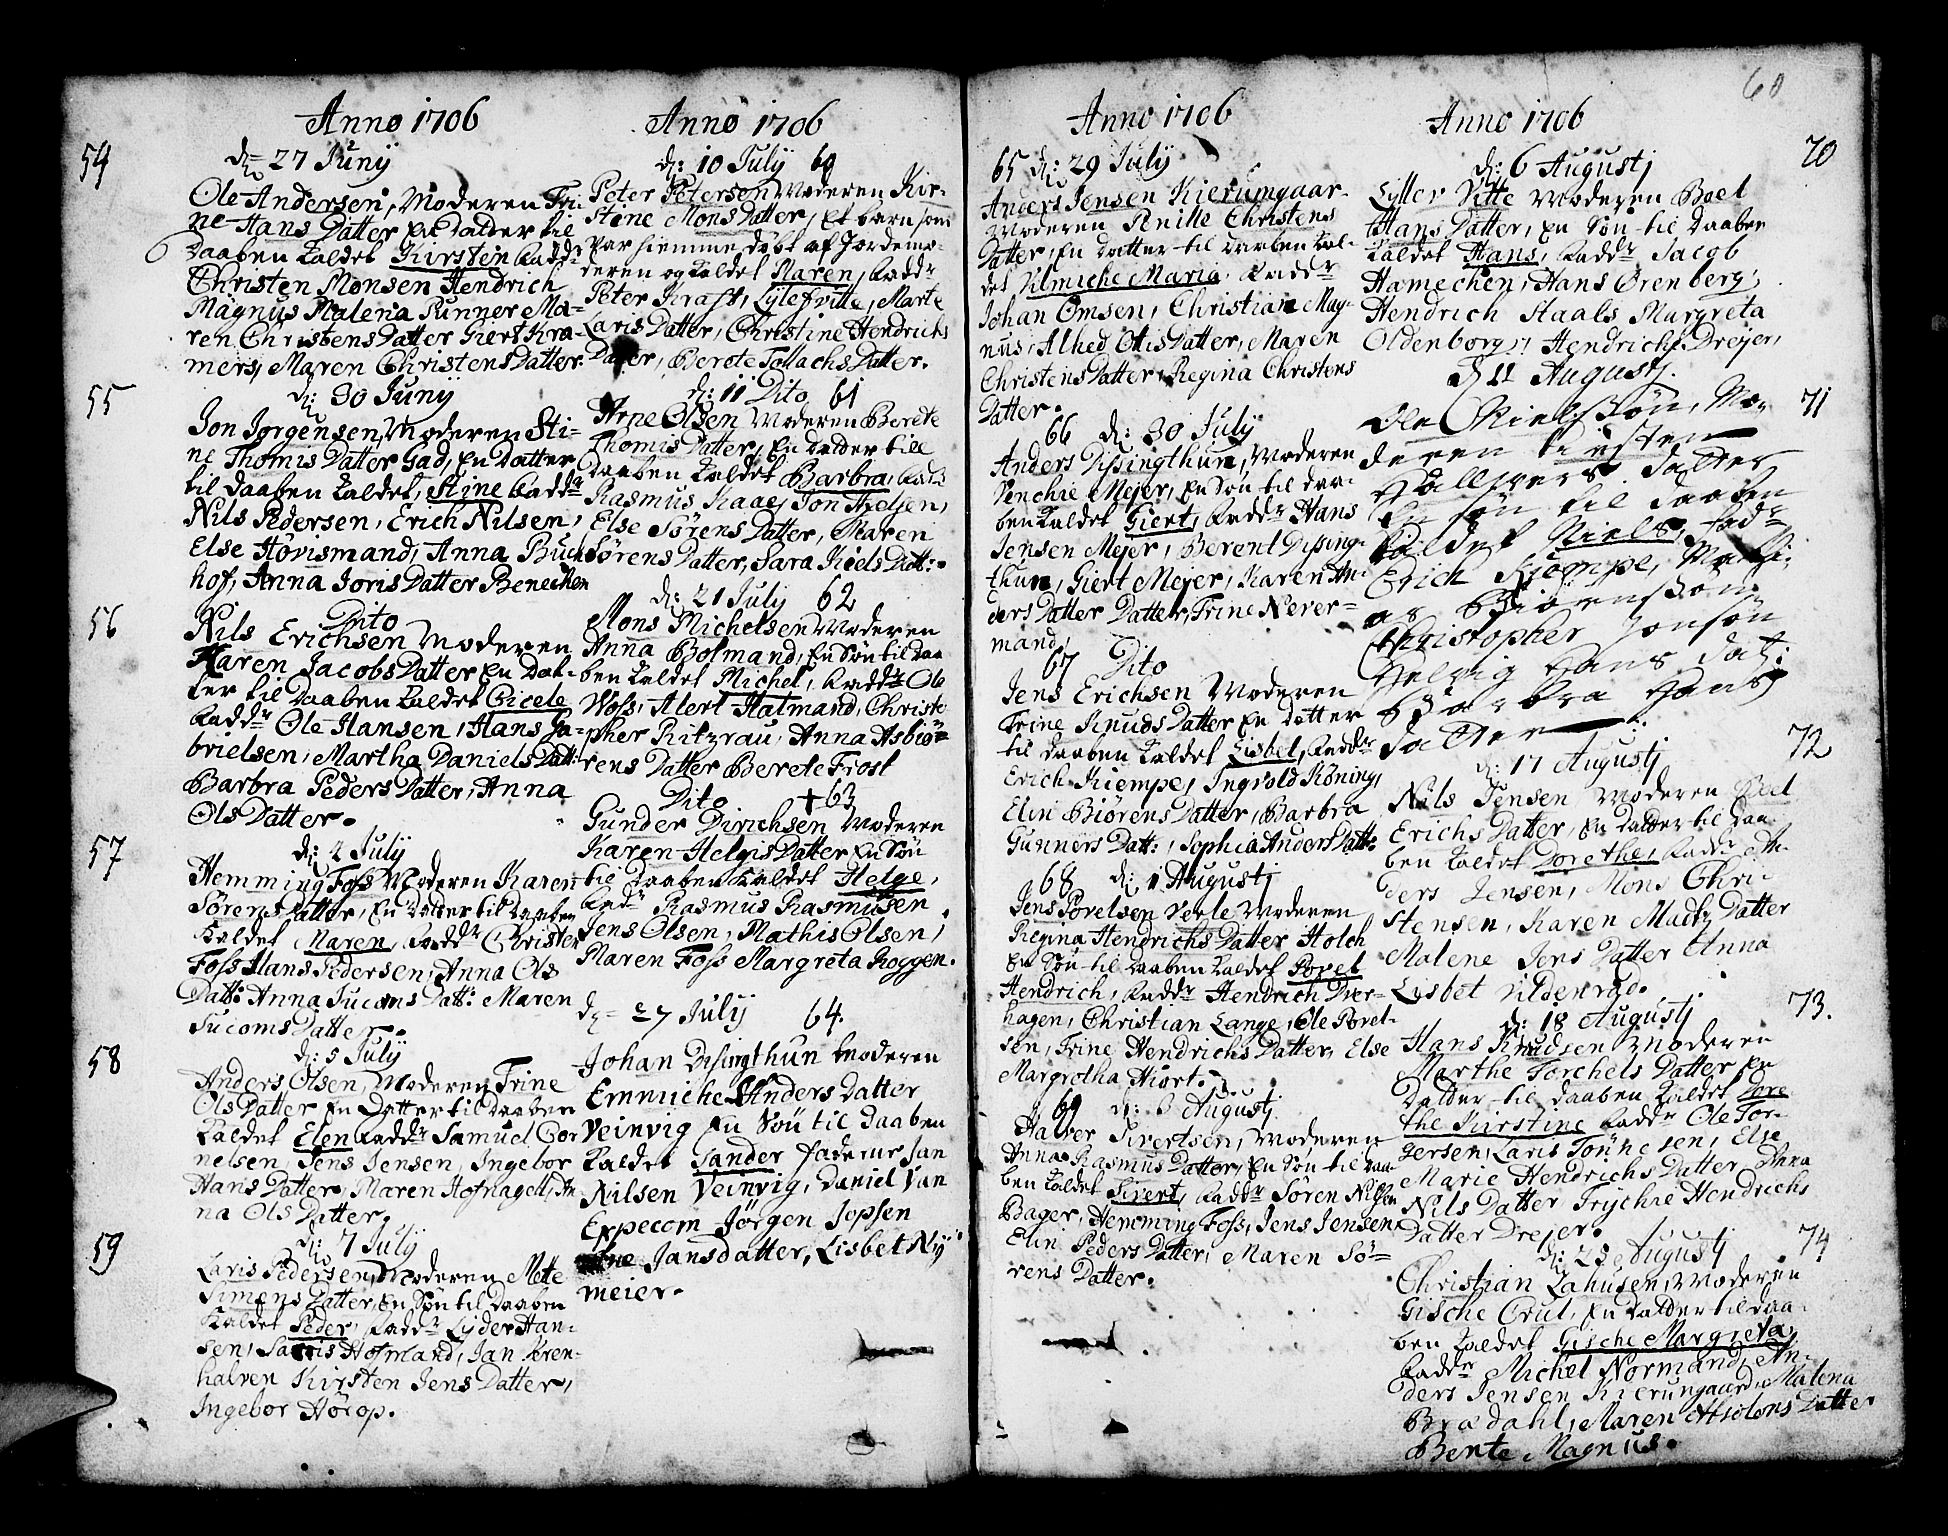 Anno 1706
54
d: 27 Junij
Ole Andersen, Moderen Tri-
ne Hans Datter En Datter til
Daaben Kaldet Kirsten Fadd:r
Christen Monsen Hendrich
Magnus Malena Runner Ma-
ren Christens Datter Giert Kra-
mers, Maren Christens Datter.
55
d: 30 Junij
Jon Jorgensen, Moderen Sti-
ne Thomis Datter Gad, En Datter
til Daaben Kaldet, Stine Fadd:r
Nils Pedersen, Erich Nilsen,
Else Hövismand, Anna Buch
hof, Anna Joris Datter Benechen
56
Dito
Nils Erichsen Moderen
Karen Jacobs Datter En Dat-
ter til Daaben Kaldet Cicele
Fadd:r Ole Hansen, Hans Ga-
brielsen, Martha Daniels Datt:
Barbra Peders Datter, Anna
Ols Datter.
57
d: 4 July
Hemming Foss Moderen Karen
Sörens Datter, En Datter til Daaben
Kaldet Maren, Fadd:r Christen
Foss Hans Pedersen, Anna Ols
Datt: Anna Jucoms Datt: Maren
Jucoms Datter.
58
d: 5 July
Anders Olsen, Moderen Trine
Ols Datter En Datter til Daaben
Kaldet Elen Fadd:r Samuel Cor
nelsen Jens Jensen, Ingebor
Hans Datter, Maren Hofnagell, An
na Ols Datter.
59
d: 7 July
Laris Pedersen, Moderen Mete
Simens Datter, En Sön til Daaben
Kaldet Peder, Fadd:r Lyder Han-
sen, Hofmand, Jan Veren-
halven Kirsten Jens Datter,
Ingebor Hörop.
Anno 1706
d: 10 July 60
Peter Petersen Moderen Kir-
stine Mons Datter, Et barn som
var hiemme döbt af Jordemo-
deren og Kaldet Maren, Fadd:r
Peter Kraft, Lytefvitte, Marte
Laris Datter, Christine Hendrichs
Datter, Berete Tollachs Datter.
d: 11 Dito 61
Arne Olsen Moderen Berete
Thomis Datter, En Datter till
Daaben Kaldet Barbra, Fadd:r
Rasmus Raae, Jon Hielsen,
Else Sörens Datter, Maren
Sörens Datter, Sara Kiels Datt:
d: 21 July 62
Mons Michelsen Moderen
Anna Bolmand, En Sön til Daa
ben Kaldet Michel, Fadd:r Ole
Voss, Alert Hatmand, Christo
pher Ritzrau, Anna Asbiö-
rens Datter Berete Frost
Dito + 63
Gunder Dirichsen Moderen
Karen Helgis Datter En Sön
til Daaben Kaldet Helge,
Fad:r Rasmus Rasmusen
Jens Olsen, Mathis Olsen,
Maren Foss Margreta Koggen.
d: 27 July 64.
Johan Dissingthun Moderen
Emmiche Anders Datter
Veinvig En Sön til Daaben
Kaldet Sander faderne Jan
Nilsen Veinvig, Daniel Van
Expecom Jörgen Jopsen
Jansdatter, Lisbet Nij
meier.
Anno 1706
65 d: 29 July
Anders Jensen Kierumgaar-
Moderen Anitte Christens
Datter, En Datter til Daaben Kal-
det Vilmiche Maria, Fadd:r
Johan Omsen, Christian Mag-
nus, Alhed Otis Datter, Maren
Christens Datter, Regina Christens
Datter.
66 d: 30 July
Anders Dissingthun, Moderen
Venchie Mejer, En Sön til Daa-
ben Kaldet Giert, Fadd:r Hans
Jensen Mejer, Berent Dissing-
thun, Giert Mejer, Karen An-
ders Datter Datter, Trine Never-
mand,
67 Dito
Jens Erichsen Moderen
Trine Knuds Datter En Datter
til Daaben Kaldet Lisbet, Fadd:r
Erich Kiempe, Ingvold Köning,
Elin Biörens Datter, Barbra
Gunners Datt:, Sophia Anders Datt:
68 d: 1 Augustj
Jens Povelsen Verle Moderen
Regina Hendrichs Datter Holch
En Sön til Daaben Kaldet Povel
Hendrich, Fadd:r Hendrich Dver-
hagen, Christian Lange, Ole Povel-
sen, Trine Hendrichs Datter, Else
Margrotha Hiort.
69 d: 3 Augustj
Halver Sivertsen, Moderen
Anna Rasmus Datter, En Sön til Daa
ben Kaldet Sivert, Fadd:r Sören Nilsen
Bager, Hemming Foss, Jens Jensen
Elin Peders Datter, Maren Sö-
rens Datter.
60
Anno 1706
d: 6 Augustj 70
Lytter Vitte Moderen Boel
Hans Datter, En Sön til Daaben
Kaldet Hans, Fadd:r Jacob
Hamechen, Hans Orenberg,
Hendrich Staals Margreta
Oldenborg, Hendrichs Drejer,
d 11 Augustj.
71
Ole Nielssön, Mo-
deren kirsten
Hallvers datter
En sön til daaben
kaldet Niels, fad:r
Erich Kiempe, Matti-
as Biörenssön
Christopher Jonsön
Helvig Hans dat:
Barbra Hans
datter
72
d: 17 Augustj
Nils Jensen Moderen Boel
Erichs Datter, En Datter til Daa
ben Kaldet Dorethe, Fadd:r An-
ders Jensen, Mons Chri-
stensen, Karen Mads Datter
Malene Jens Datter Anna
Lysbet Vildenrad.
73.
d: 18 Augustj
Hans Knudsen Moderen
Marthe Torchels Datter En
Datter til Daaben Kaldet Dore
the Kirstine Fadd:r Ole Tor-
gersen, Laris Tönnesen, Else
Marie Hendrichs Datter Anna
Nils Datter Frychie Hendrichs
Datter Drejer.
74
d: 23 Augustj
Christian Lahusen, Moderen
Gische Crul, En Datter til Daa-
ben Kaldet Gische Margreta,
Fadd:r Michel Normand, An-
ders Jensen Kierungaard, Malena
Bradahl, Maren Absolons Datter
Bente Magnus.